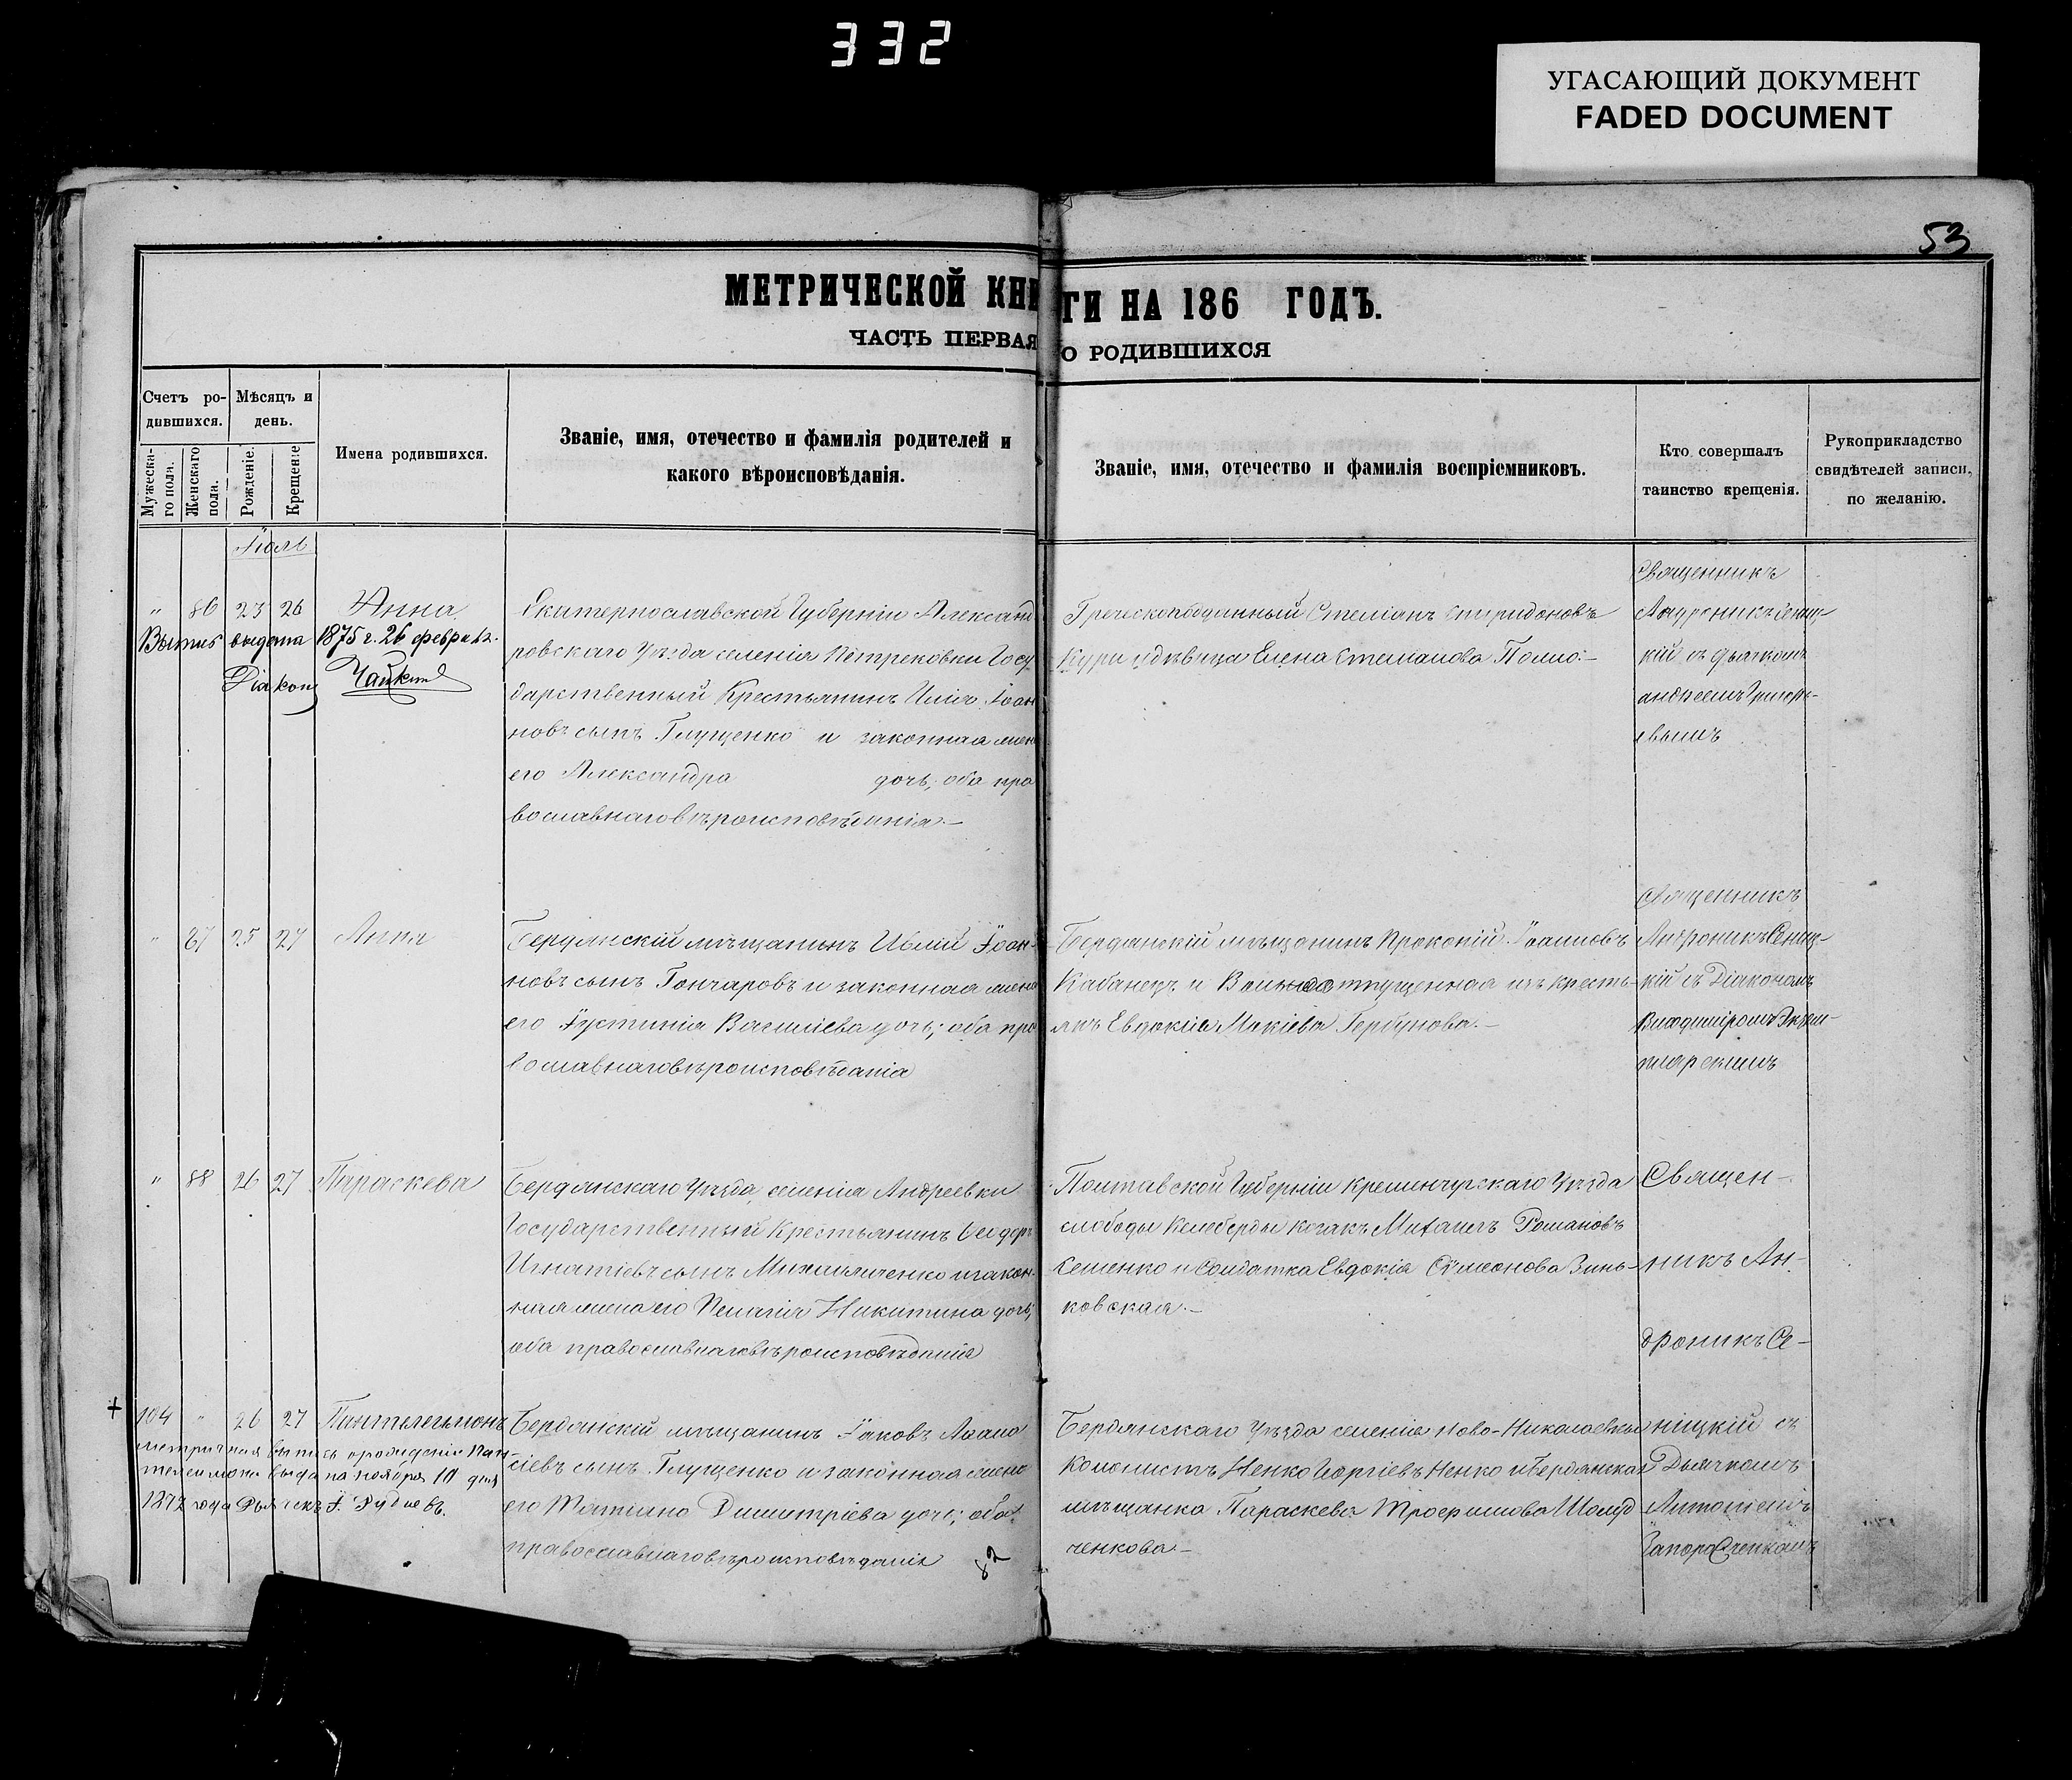 332
УГАСАЮЩИЙ ДОКУМЕНТ
FADED DOCUMENT
53
МЕТРИЧЕСКОЙ КНИГИ НА 186 ГОДЪ.
ЧАСТЬ ПЕРВАЯ О РОДИВШИХСЯ
Счетъ ро-
дившихся.
Мужеска-
го пола.
Женскаго
пола.
Мѣсяцъ и
день.
Рожденіе.
Крещеніе
Имена родившихся.
Званіе, имя, отечество и фамилія родителей и
какого вѣроисповѣданія.
Званіе, имя, отечество и фамилія воспріемниковъ.
Кто совершалъ
таинство крещенія.
Рукоприкладство
свидѣтелей записи,
по желанію.
Іюль
„ 86 23 26 Анна
Выпис выдана 1875 г. 26 февраля.
Діаконъ
Екатеринославской Губерніи Александ
ровскаго Уѣзда селенія Петрековки Госу-
дарственный Крестьянинъ Илія Іоан
новъ сынъ Глущенко и законная жена
его Александра дочь, оба пра
вославнаго вѣроисповѣданія.–
Греческоподданный Стеліанъ Спиридоновъ
Кури и дѣвица Елена Стеліанова
Священникъ
Андроникъ Сениц-
кій съ дьячкомъ
Андреемъ Григорь-
евымъ
„ 87 25 27 Анна
Бердянскій мѣщанинъ Іоан-
новъ сынъ Гончаровъ и законная жена
его Іустинія Василіева дочь; оба пра
вославнаго вѣроисповѣданія
Бердянскій мѣщанинъ Прокопій Іоанновъ
Кабанецъ и Вольноотпущенная изъ кресть-
янъ Евдокія Горбунова.–
Священникъ
Андроникъ Сениц-
кій съ Діакономъ
Владиміромъ
„ 88 26 27 Параскева
Бердянскаго Уѣзда селенія Андреевки
Государственный Крестьянинъ Ѳеодоръ
Игнатіевъ сынъ Михайличенко и закон-
ная жена его Пелагія Никитина дочь;
оба православнаго вѣроисповѣданія
Полтавской Губерніи Кременчугскаго Уѣзда
слободы Келеберды козакъ Михаилъ Романовъ
и Солдатка Евдокія Сѵмеонова Зинь-
ковская.–
Священ-
никъ Ан-
дроникъ Се-
+ 104 „ 26 27 Пантелеимонъ
метричная выпись о рожденіи Пан-
телеимона выдана ноября 10 дня
1872 года
Бердянскій мѣщанинъ Іаковъ Аѳана
сіевъ сынъ Глущенко и законная жена
его Татіана Димитріева дочь; оба
православнаго вѣроисповѣданія
Бердянскаго Уѣзда селенія Ново-Николаевки
Колонистъ Ненко Георгіевъ Ненко и Бердянская
мѣщанка Параскева Трофимова
ченкова–
ницкій съ
Дьячкомъ
Антоніемъ